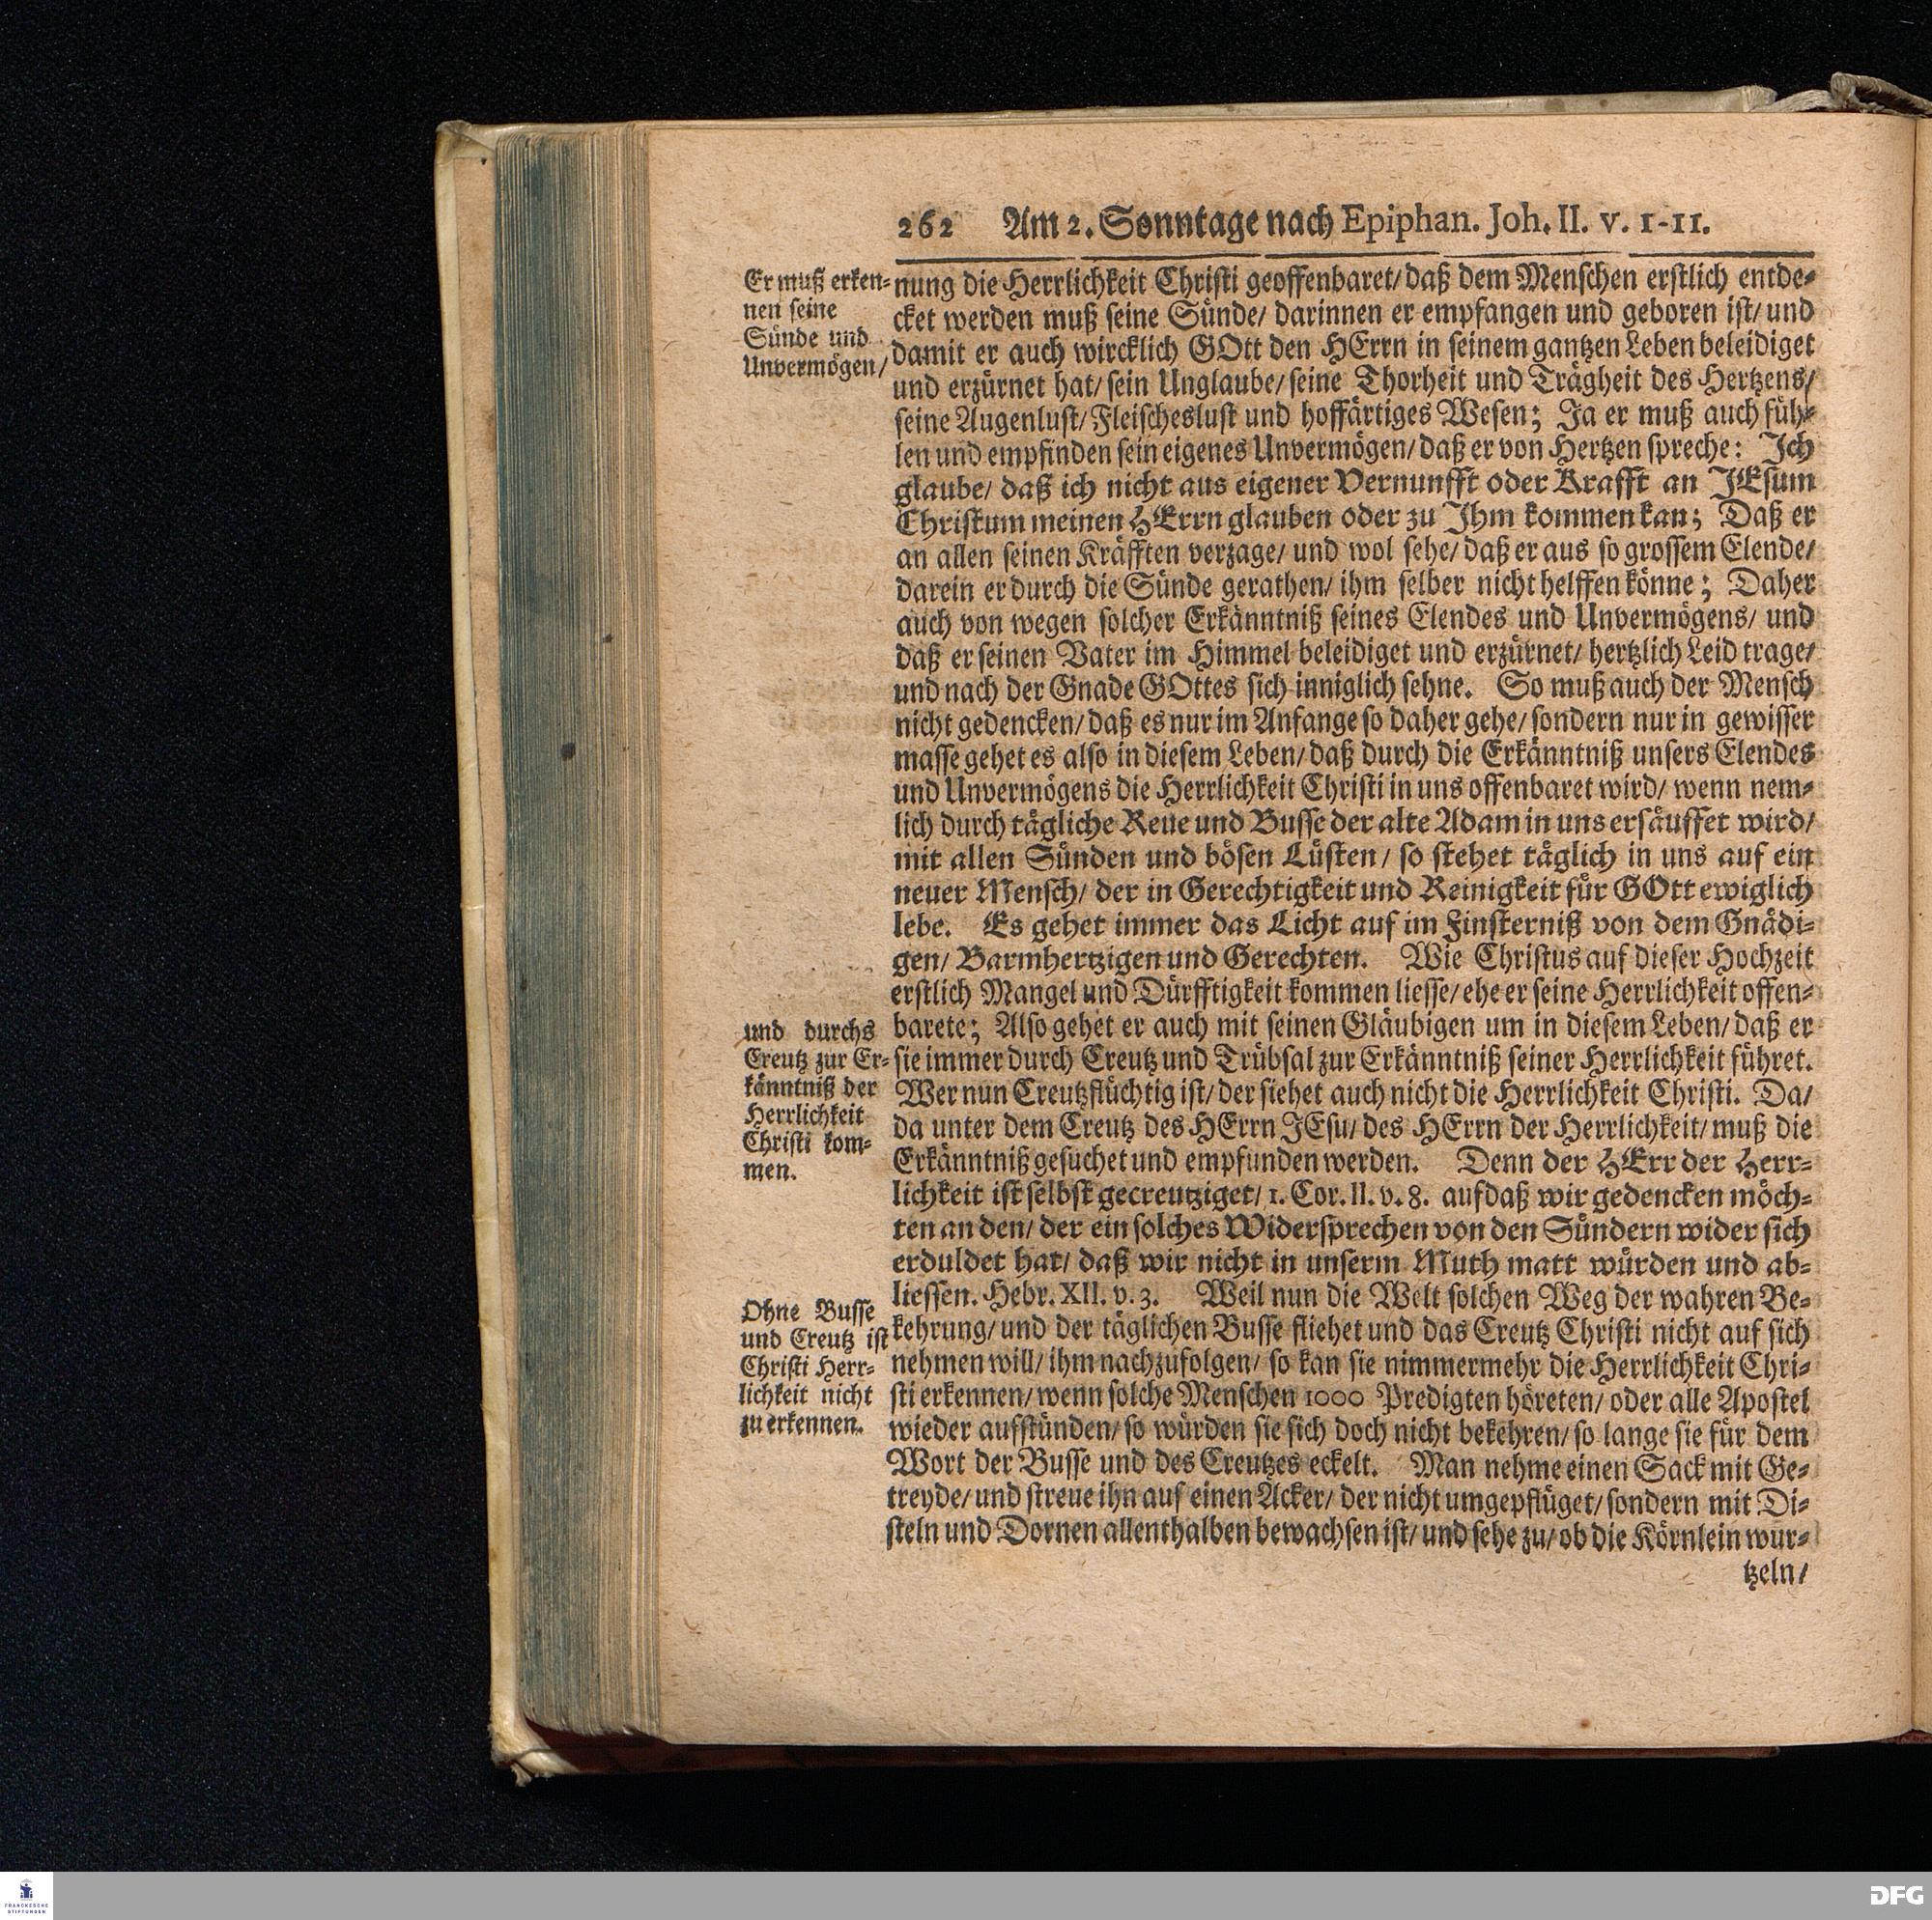 262 Am 2. Sonntage nach Epiphan. Joh. II. v. 1-11.
Er muß erken-
nen seine
Sünde und
Unvermögen/
nung die Herrlichkeit Christi geoffenbaret/ daß dem Menschen erstlich entde-
cket werden muß seine Sünde/ darinnen er empfangen und geboren ist/ und
damit er auch wircklich GOtt den HErrn in seinem gantzen Leben beleidiget
und erzürnet hat/ sein Unglaube/ seine Thorheit und Trägheit des Hertzens/
seine Augenlust/ Fleischeslust und hoffärtiges Wesen; Ja er muß auch füh-
len und empfinden sein eigenes Unvermögen/ daß er von Hertzen spreche: Ich
glaube/ daß ich nicht aus eigener Vernunfft oder Krafft an JEsum
Christum meinen HErrn glauben oder zu Ihm kommen kan; Daß er
an allen seinen Kräfften verzage/ und wol sehe/ daß er aus so grossem Elende/
darein er durch die Sünde gerathen/ ihm selber nicht helffen könne; Daher
auch von wegen solcher Erkänntniß seines Elendes und Unvermögens/ und
daß er seinen Vater im Himmel beleidiget und erzürnet/ hertzlich Leid trage/
und nach der Gnade GOttes sich inniglich sehne. So muß auch der Mensch
nicht gedencken/ daß es nur im Anfange so daher gehe/ sondern nur in gewisser
masse gehet es also in diesem Leben/ daß durch die Erkänntniß unsers Elendes
und Unvermögens die Herrlichkeit Christi in uns offenbaret wird/ wenn nem-
lich durch tägliche Reue und Busse der alte Adam in uns ersäuffet wird/
mit allen Sünden und bösen Lüsten/ so stehet täglich in uns auf ein
neuer Mensch/ der in Gerechtigkeit und Reinigkeit für GOtt ewiglich
lebe. Es gehet immer das Licht auf im Finsterniß von dem Gnädi-
gen/ Barmhertzigen und Gerechten. Wie Christus auf dieser Hochzeit
erstlich Mangel und Dürfftigkeit kommen liesse/ ehe er seine Herrlichkeit offen-
barete; Also gehet er auch mit seinen Gläubigen um in diesem Leben/ daß er
sie immer durch Creutz und Trübsal zur Erkänntniß seiner Herrlichkeit führet.
Wer nun Creutzflüchtig ist/ der siehet auch nicht die Herrlichkeit Christi. Da/
da unter dem Creutz des HErrn JEsu/ des HErrn der Herrlichkeit/ muß die
Erkänntniß gesuchet und empfunden werden. Denn der HErr der Herr-
lichkeit ist selbst gecreutziget/ 1. Cor. II. v. 8. auf daß wir gedencken möch-
ten an den/ der ein solches Widersprechen von den Sündern wider sich
erduldet hat/ daß wir nicht in unserm Muth matt würden und ab-
liessen. Hebr. XII. v. 3. Weil nun die Welt solchen Weg der wahren Be-
kehrung/ und der täglichen Busse fliehet und das Creutz Christi nicht auf sich
nehmen will/ ihm nachzufolgen/ so kan sie nimmermehr die Herrlichkeit Chri-
sti erkennen/ wenn solche Menschen 1000 Predigten höreten/ oder alle Apostel
wieder aufstünden/ so würden sie sich doch nicht bekehren/ so lange sie für dem
Wort der Busse und des Creutzes eckelt. Man nehme einen Sack mit Ge-
treyde/ und streue ihn auf einen Acker/ der nicht umgepflüget/ sondern mit Di-
steln und Dornen allenthalben bewachsen ist/ und sehe zu/ ob die Körnlein wur-
tzeln/
und durchs
Creutz zur Er-
känntniß der
Herrlichkeit
Christi kom-
men.
Ohne Busse
und Creutz ist
Christi Herr-
lichkeit nicht
zu erkennen.
FRANCKESCHE
STIFTUNGEN
DFG